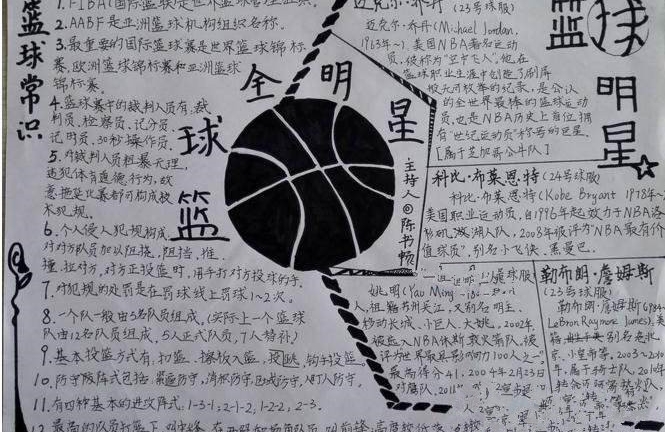 篮球常识
2.AABF是亚洲篮球机构组织名称。
3.最重要的国际篮球赛是世界篮球锦标
赛,欧洲篮球锦标赛和亚洲篮球
锦标赛。
4.篮球赛中的裁判人员有:裁
判员,检察员,记分员
记时员,30秒操作员。
5.对裁判人员粗暴无理,
违犯体育道德行为,故
意拖延比赛都可构成技
术犯规。
6.个人侵人犯规构成:
对对方队员加以阻挠,阻挡,推,
撞,拉对方,对方正投篮时,用手打对方投球的手
7.对犯规的处罚是在罚球线上罚球1~2次。
8.一个队一般由5名队员组成。(实际上一个篮球
队由12名队员组成,5人正式队员,7人替补)
9.基本投篮方式有:扣篮,擦板入篮,
10.防守阵式包括:紧迫防守,消积防守,
11.有四种基本的进攻阵式:1-3-1;2-1-2,1-2-2,2-3。
篮球
全明星
主持人@陈书顿
迈克尔·乔丹(23号球服)
迈克尔·乔丹(Michael Jordan,
1963年~),美国NBA著名运动
员,被称为"空中飞人",他在
篮球职业生涯中创造了刷屏
般无可枚举的纪录,是公认
的全世界最棒的篮球运动
员,也是NBA历史上首位拥
有"世纪运动员"称号的巨星。
[属于芝加哥公牛队]
篮球明星
科比·布莱恩特(24号球服)
科比·布莱恩特(Kobe Bryant 1978年~
美国职业运动员,自1996年起效力于NBA洛
杉矶湖人队,2008年被评为"NBA最有价
值球员",别名小飞侠,黑曼巴。
姚明(Yao Ming
人,祖籍苏州吴江,又别名明王,
移动长城,小巨人,大姚。2002年,
被选入NBA休斯敦火箭队,被
评为世界最具影响力100人之一
最高得分41,2009年2月23日
勒布朗·詹姆斯
(23号球服)
勒布朗·詹姆斯(1984~
LeBron Raymone James),美